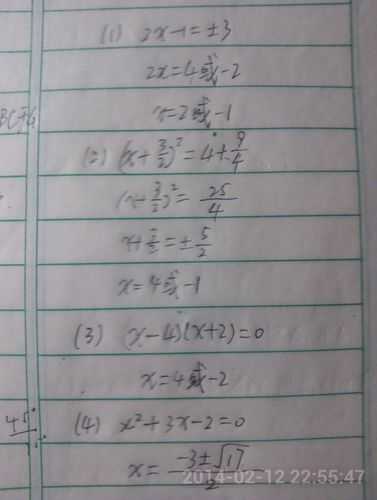 (1) 2x-1=±3
2x=4或-2
x=2或-1
(2) (x+3/2)²=4+9/4
(x+3/2)²=25/4
x+3/2=±5/2
x=4或-1
(3) (x-4)(x+2)=0
x=4或-2
45°
(4) x²+3x-2=0
x=(-3±√17)/2
2014-02-12 22:55:47